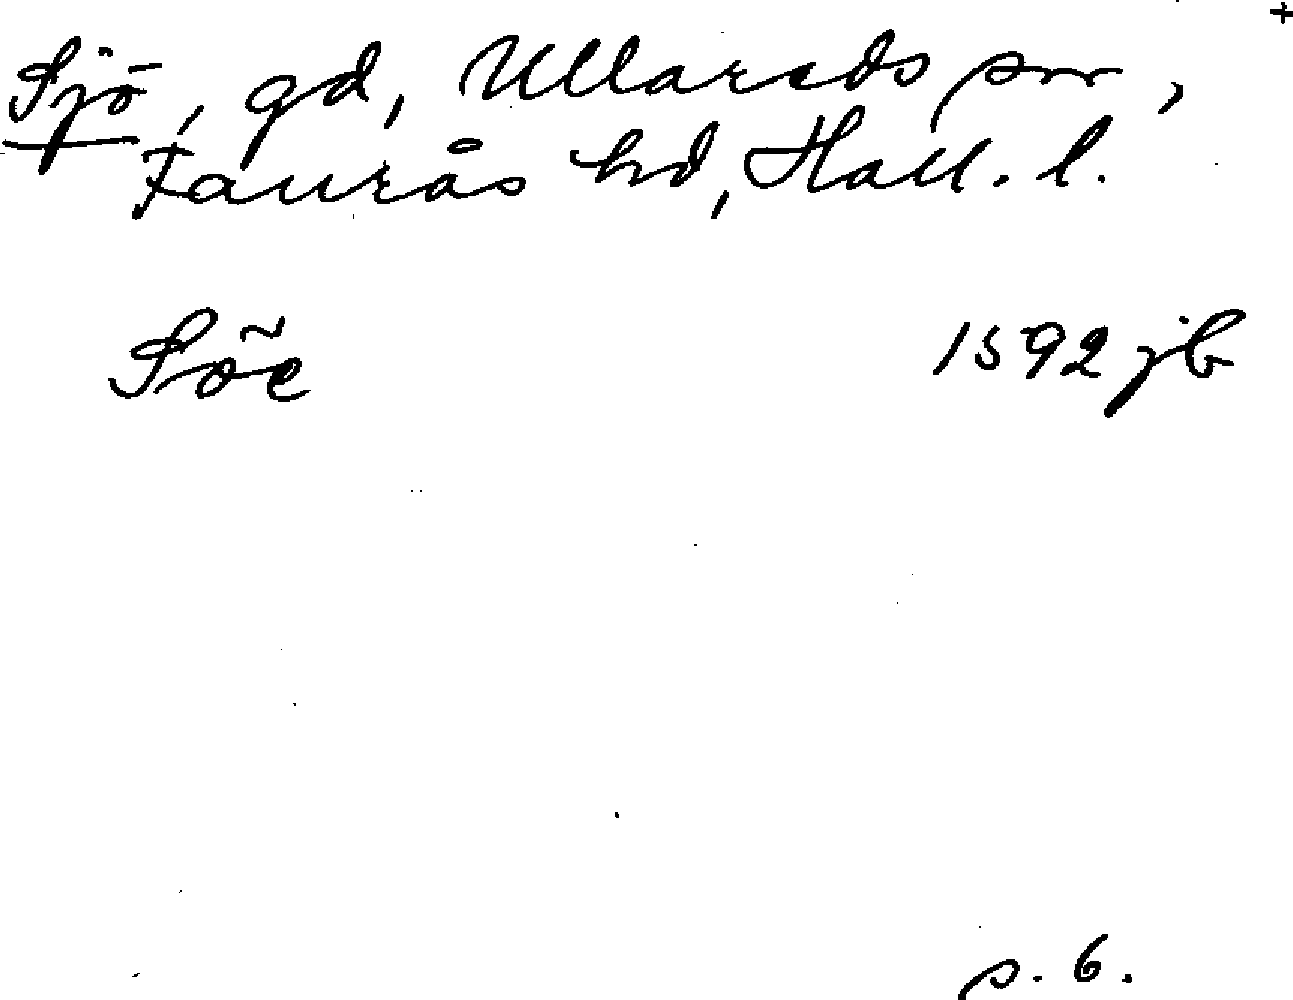 +
Sjö, gd, Ullareds sn,
Faurås hd, Hall. l.
Söe 1592 jb
s. 6.